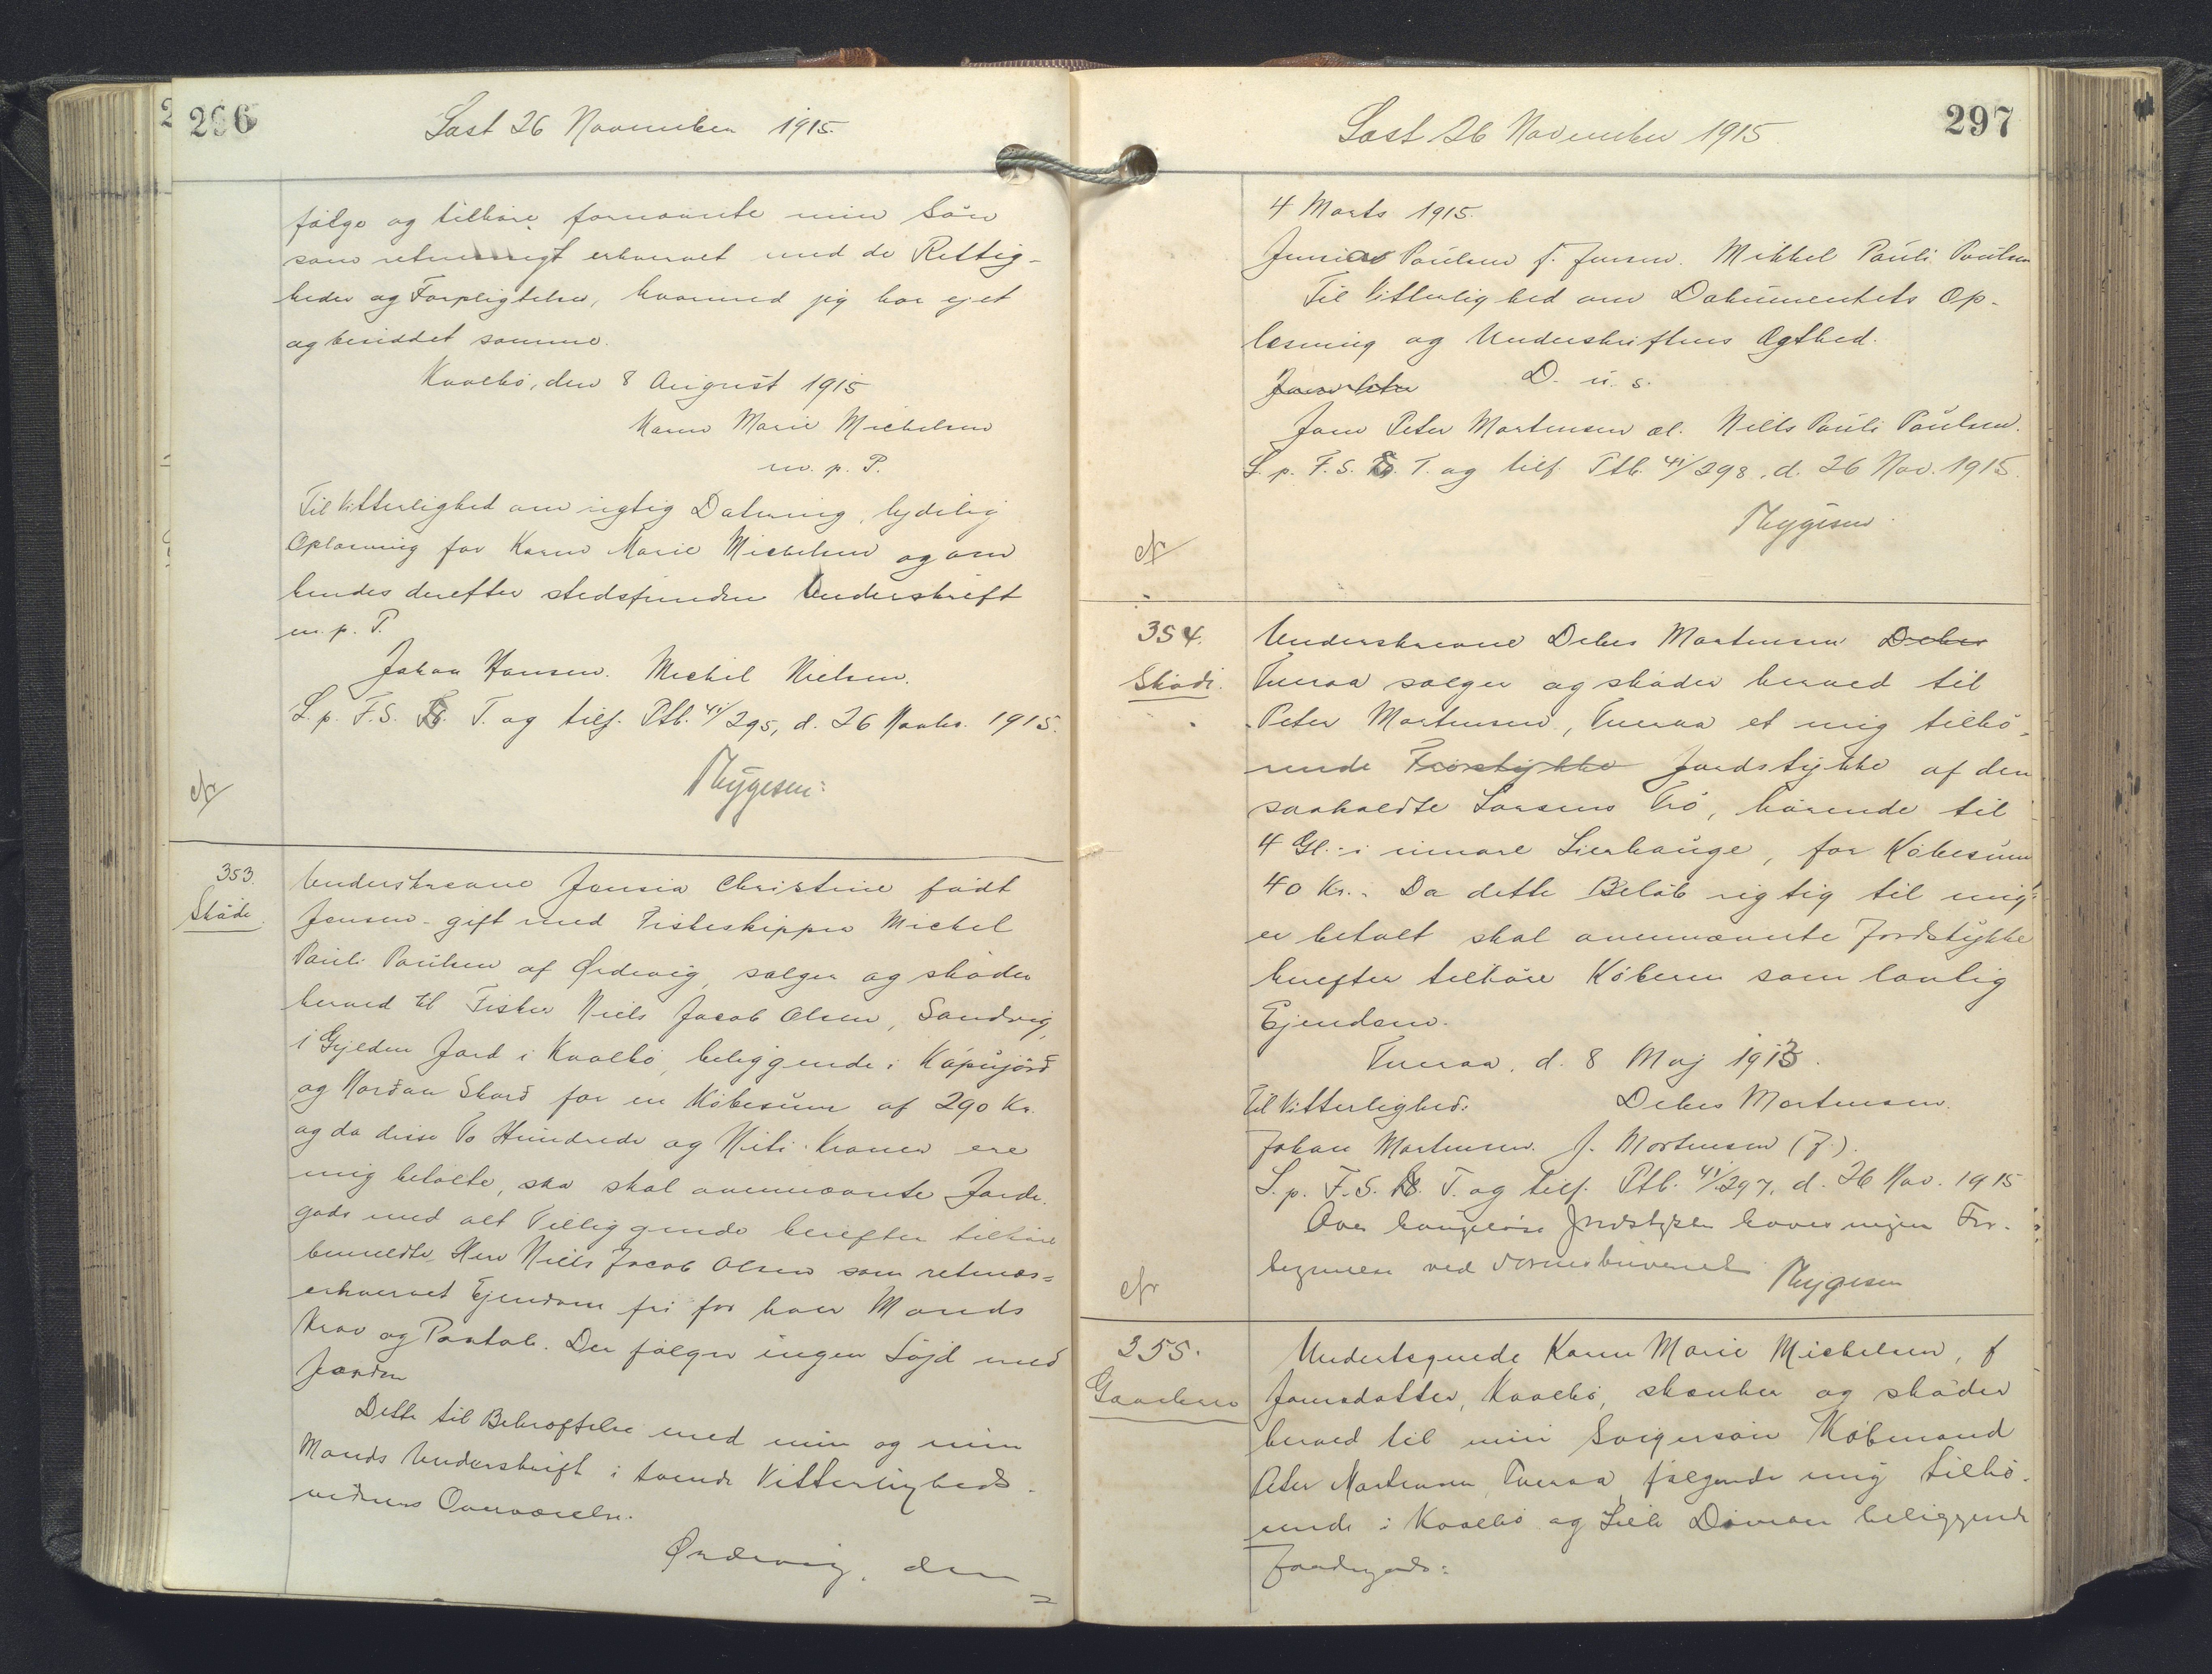 296
Læst 26 November 1915.
følge og tilhøre fornævnte min Søn
som retmæssigt erhvervet med de Rettig-
heder og Forpligtelser, hvormed jeg har ejet
og besiddet samme.
Kvalbø, den 8 August 1915
Karen Marie Michelsen
m. p. P.
Til Vitterlighed om rigtig Datering, lydelig
Oplæsning for Karen Marie Michelsen og om
hendes derefter stedfundne Underskrift
m. p. P.
Johan Hansen. Michel Nielsen.
L. p. F. S. T. og tilf. Ptb. 41/295, d. 26 Novbr. 1915.
Thygesen
cfr
353.
Skøde.
Underskrevne Jensia Christine født
Jensen - gift med Fiskeskipper Michel
Pauli Poulsen af Ørdevig, sælger og skøder
herved til Fisker Niels Jacob Olsen, Sandvig,
1 Gylden Jord i Kvalbø, beliggende i Kápujørd
og Nordan Skard for en Købesum af 290 Kr.
og da disse To Hundrede og Niti Kroner ere
mig betalte, saa skal ovennævnte Jorde-
gods med alt Tilliggende herefter tilhøre
bemeldte Herr Niels Jacob Olsen som retmæs=
erhvervet Ejendom fri for hver Mands
Krav og Paatale. Der følger ingen Løjd med
Jorden
Dette til Bekræftelse med min og min
Mands Underskrift i tvende Vitterligheds-
vidners Overværelse.
Ørdevig, den =
297
Læst 26 November 1915
4 Marts 1915.
Jensia Poulsen f. Jensen. Mikkel Pauli Poulsen
Til Vitterlighed om Dokumentets Op-
læsning og Underskriftens Ægthed.
D. u. s.
Jens Peter Mortensen æl. Niels Pauli Poulsen.
L. p. F. S. T. og tilf. Ptb. 41/298, d. 26 Nov. 1915.
Thygesen
cfr
354.
Skøde.
Underskrevne Debes Mortensen Debes
Tveraa sælger og skøder herved til
Peter Mortensen, Tveraa et mig tilhø-
rende Trøstykke Jordstykke af den
saakaldte Larsens Trø, hørende til
4 Gl. i immare Lierhauge, for Købesum
40 Kr. Da dette Beløb rigtig til mig
er betalt skal ovennævnte Jordstykke
herefter tilhøre Køberen som lovlig
Ejendom.
Tveraa, d. 8 Maj 1915.
Til Vitterlighed: Debes Mortensen.
Johan Mortensen. J. Mortensen (J.).
L. p. F. S. T. og tilf. Ptb. 41/297, d. 26 Nov. 1915
Over Jordstykke haves ingen For-
ved Thygesen
cfr
355.
Gavebrev
Undertegnede Karen Marie Michelsen, f
Joensdatter, Kvalbø, skænker og skøder
herved til min Svigersøn Købmand
Peter Mortensen, Tveraa, følgende mig tilhø-
rende i Kvalbø og Lille Dimon beliggende
Jordegods: